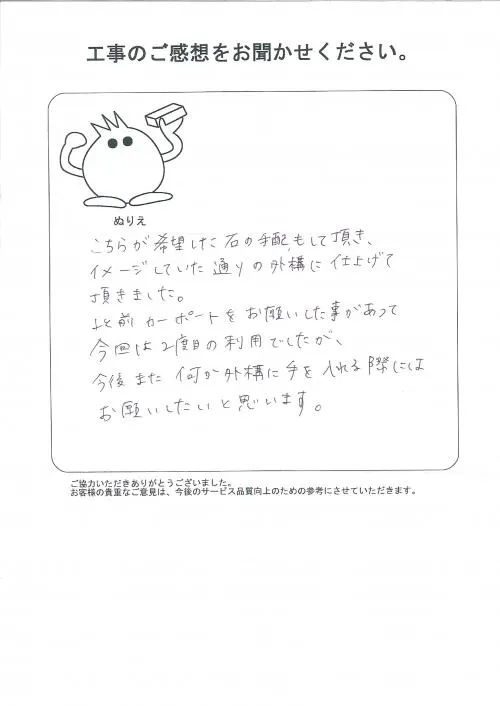 工事のご感想をお聞かせください。
ぬりえ
こちらが希望した石の手配もして頂き、
イメージしていた通りの外構に仕上げて
頂きました。
前カーポートをお願いした事があって
今回は2度目の利用でしたが、
今後また何か外構に手を入れる際には
お願いしたいと思います。
ご協力いただきありがとうございました。
お客様の貴重なご意見は、今後のサービス品質向上のための参考にさせていただきます。